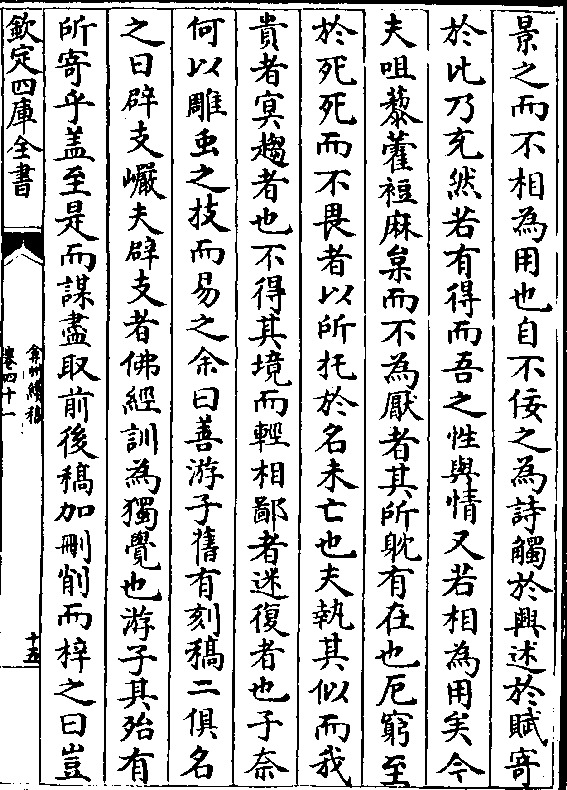 景之而不相為用也自不佞之為詩觸於興述於賦寄
於比乃充然若有得而吾之性與情又若相為用矣今
夫咀藜藿裋麻枲而不為厭者其所躭有在也厄窮至
於死死而不畏者以所托於名未亡也夫執其似而我
貴者冥趨者也不得其境而輕相鄙者迷復者也子奈
何以雕虫之技而易之余曰善游子舊有刻稿二俱名
之曰辟支巖夫辟支者佛經訓為獨覺也游子其殆有
所寄乎盖至是而謀盡取前後稿加刪削而梓之曰豈
欽定四庫全書
弇州續稿
卷四十一
十五